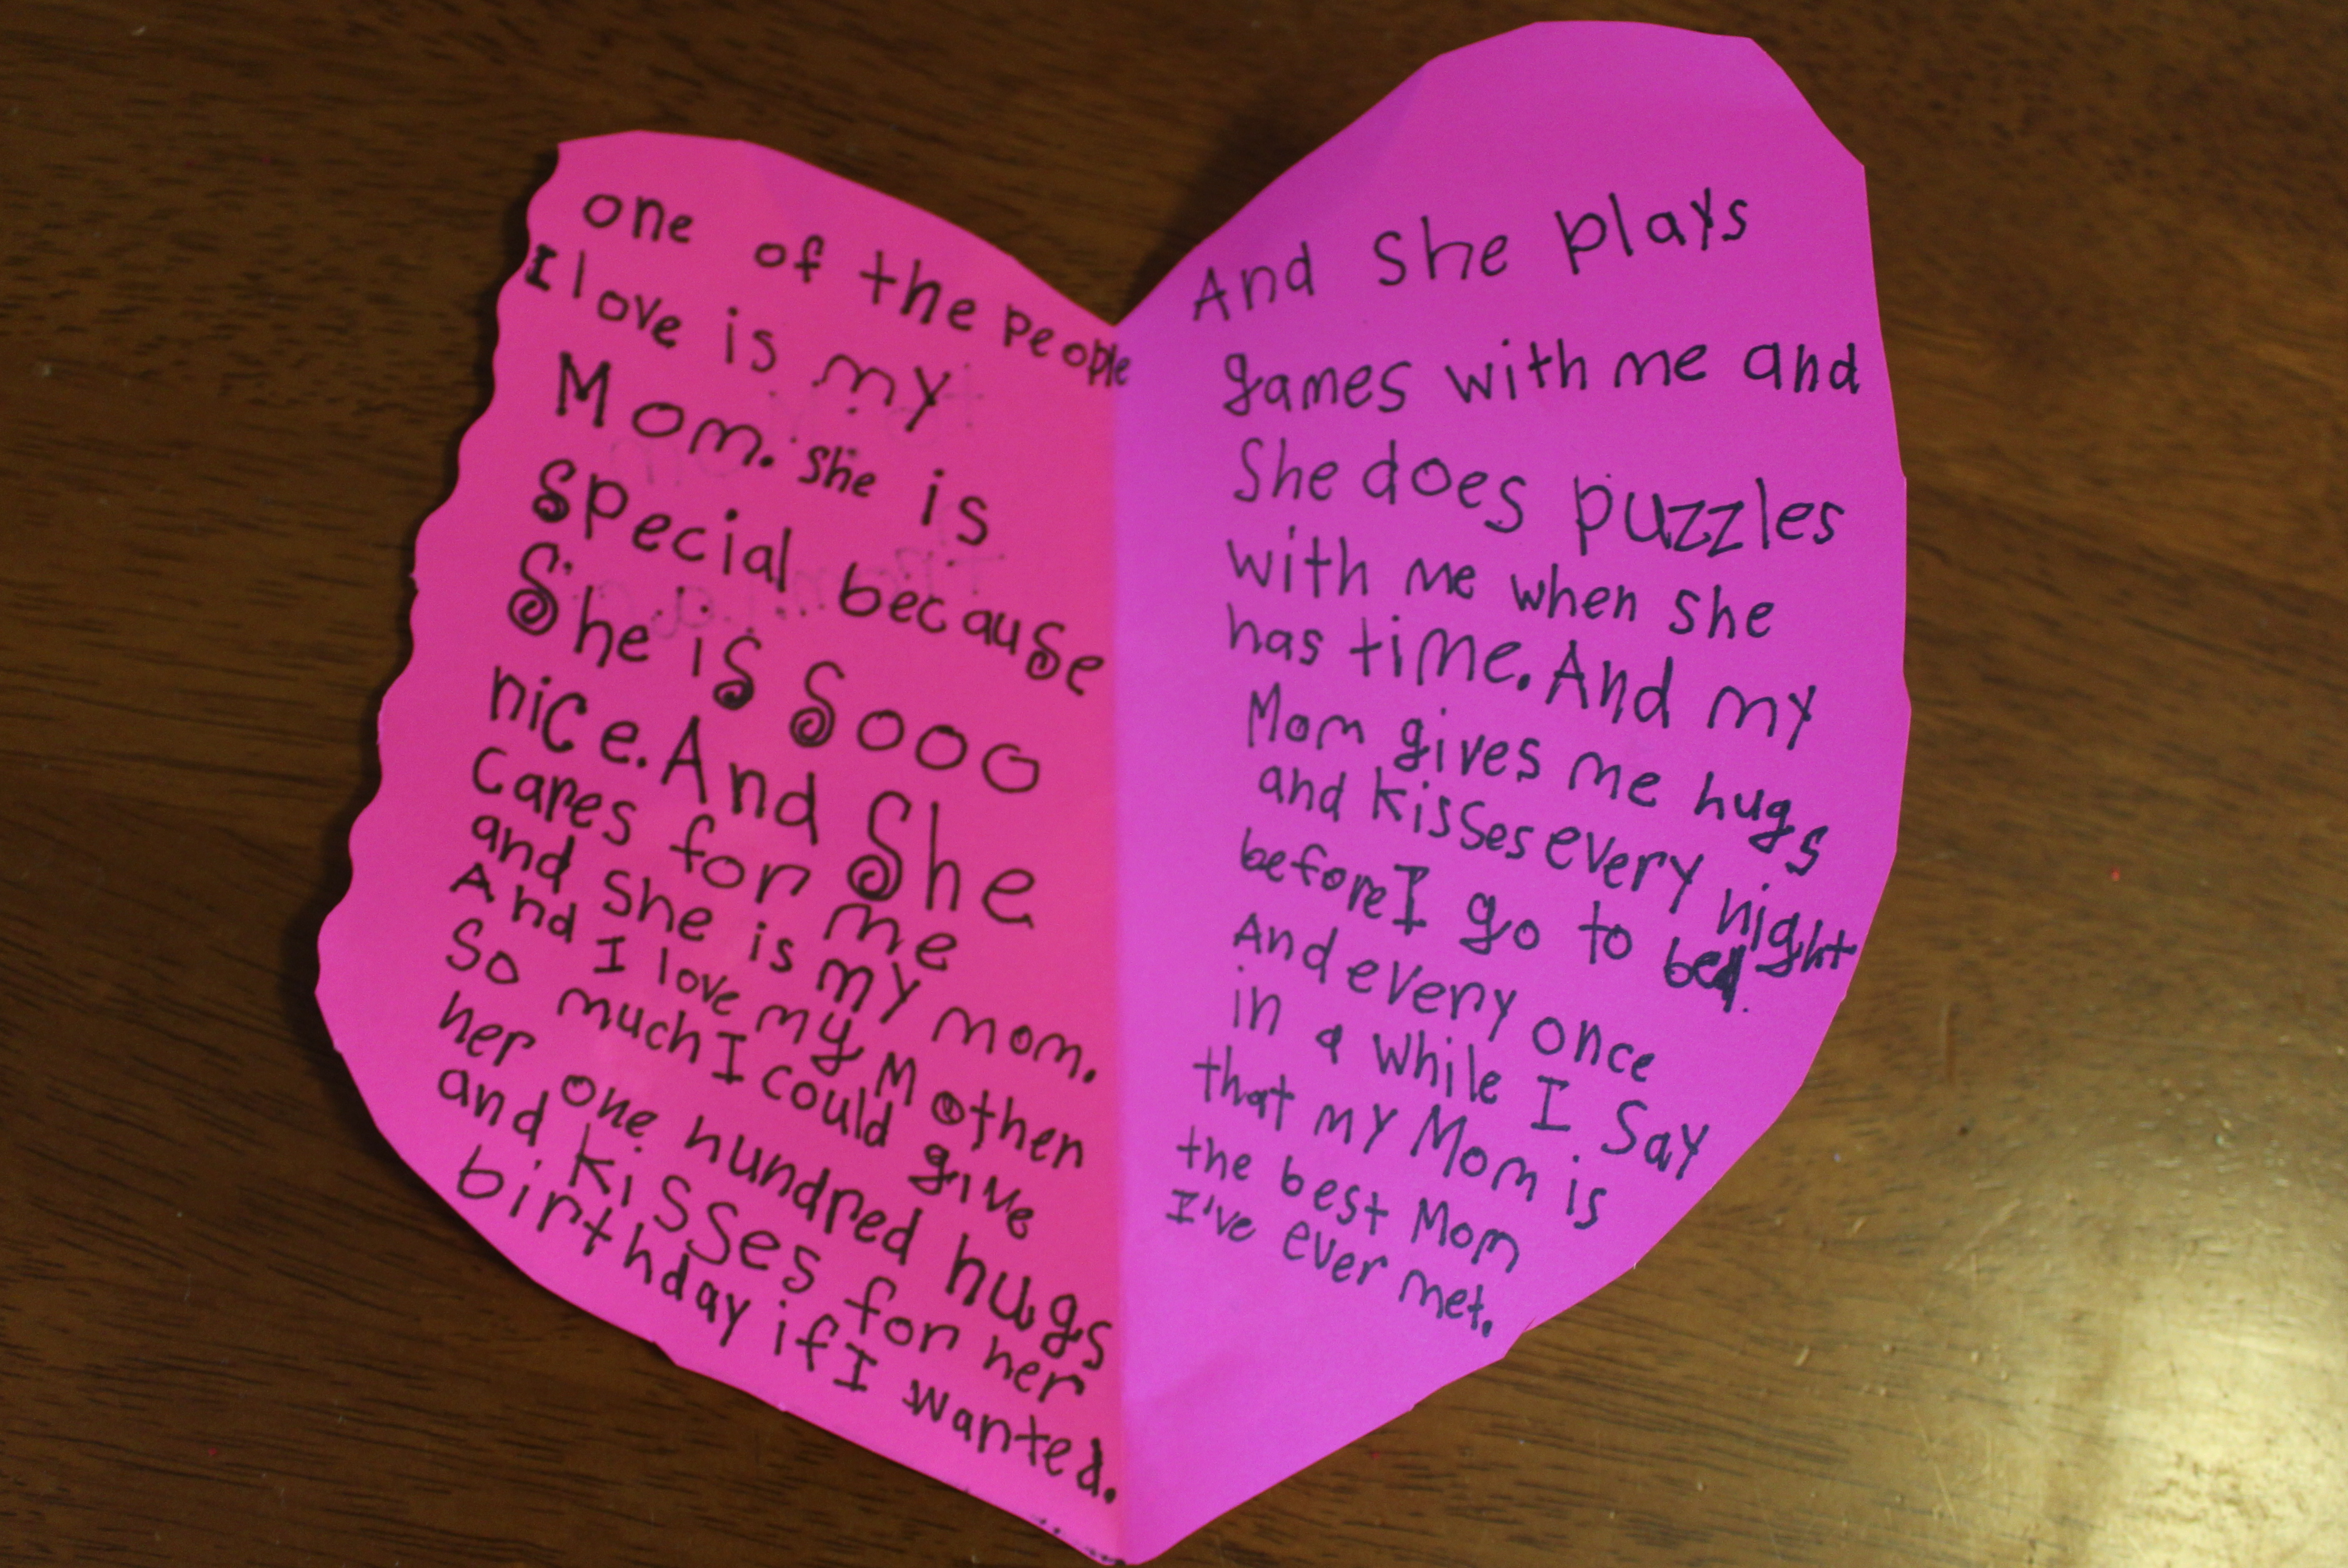 one of the people
I love is my
Mom. she is
special because
She is Sooo
nice. And She
Cares for me
and she is my mom.
And I love my Mother
So much I could give
her one hundred hugs
and kisses for her
birthday if I wanted.
And She plays
games with me and
She does puzzles
with me when she
has time. And my
Mom gives me hugs
and kisses every night
before I go to bed.
And every once
in a while I Say
that my Mom is
the best Mom
I've ever met.